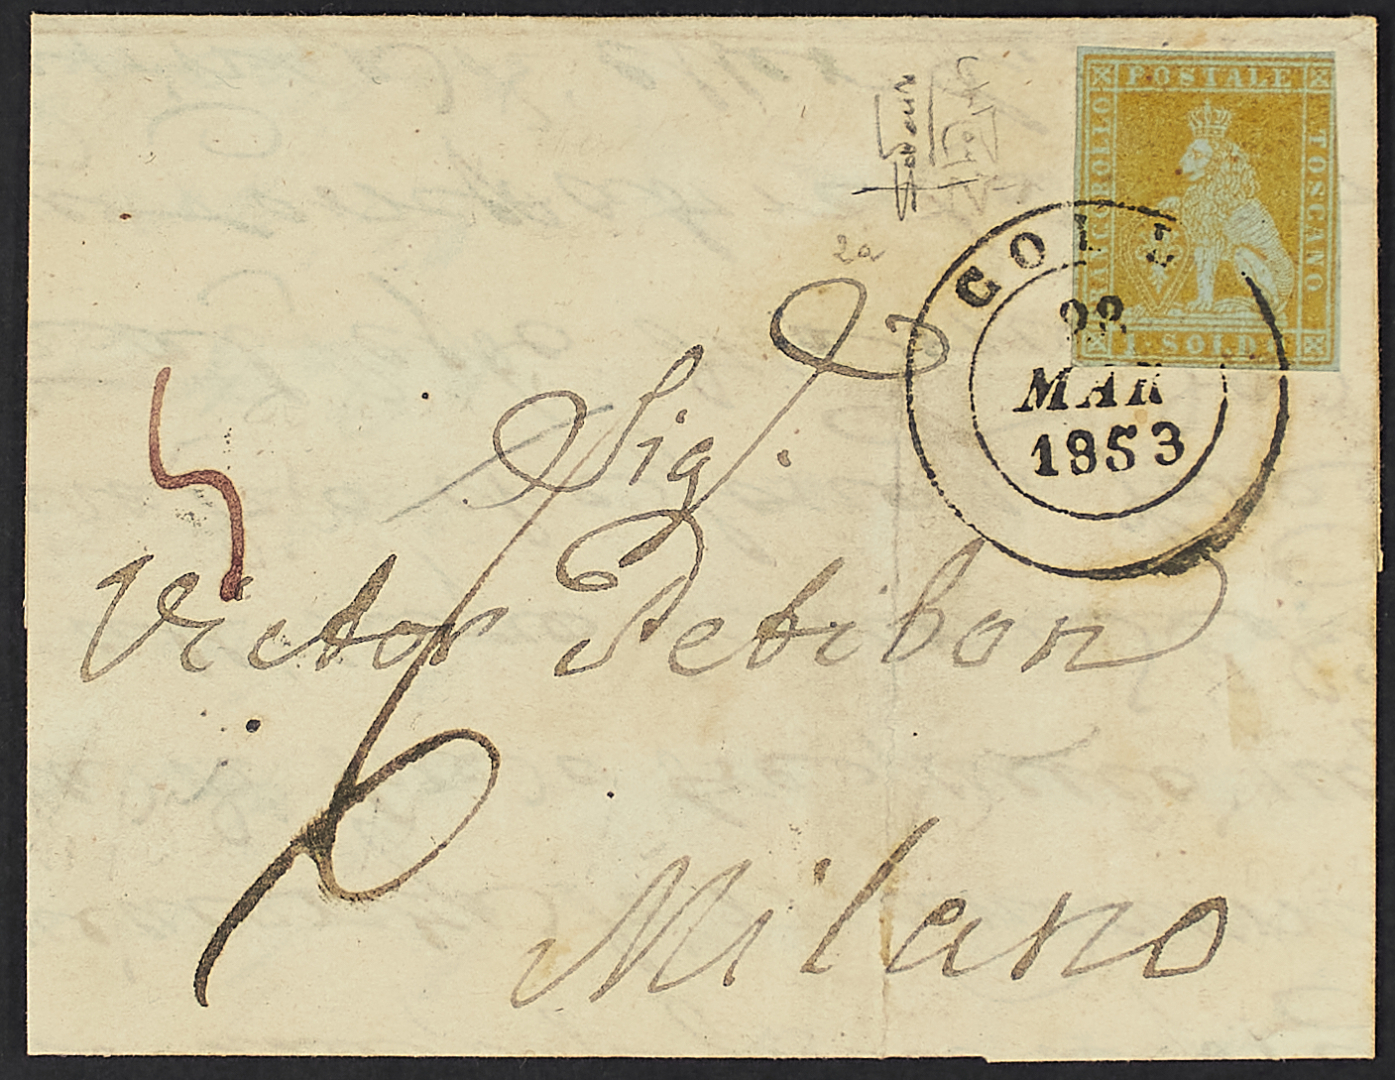 POSTALE
FRANCOBOLLO
TOSCANO
1·SOLDO
COLLE
22
MAR
1853
2a
Sigr.
Victor Petibon
6
Milano